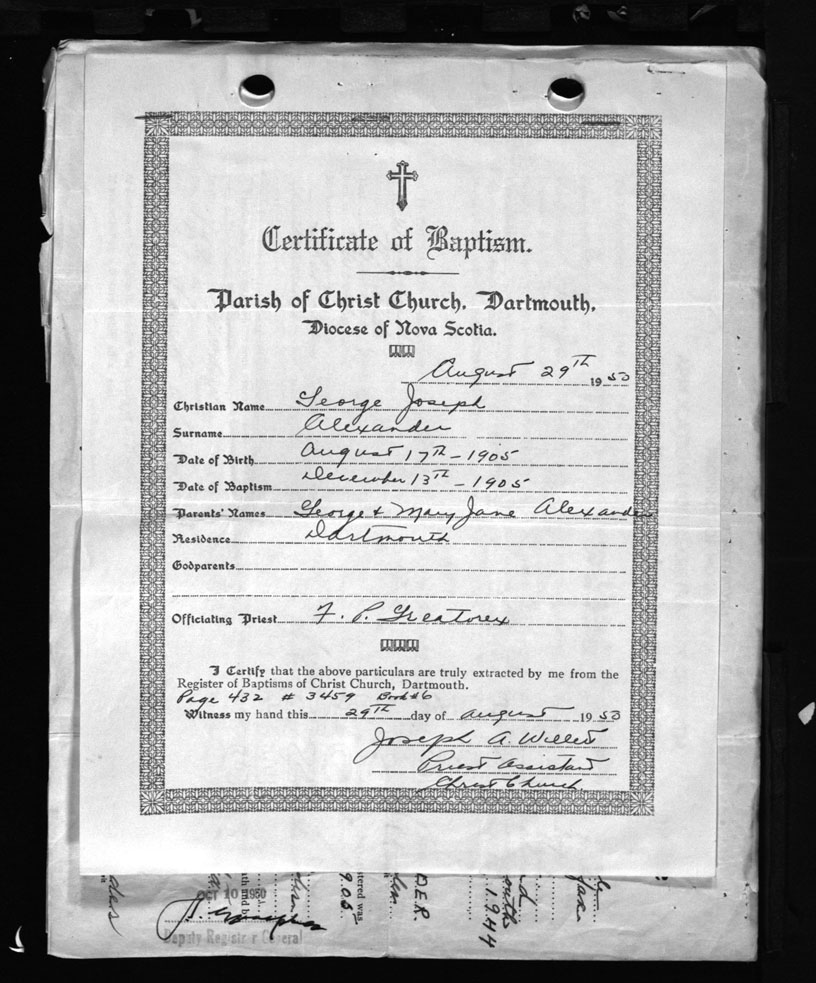 Certificate of Baptism.
Parish of Christ Church, Dartmouth,
Diocese of Nova Scotia.
August 29TH 1953
Christian Name George Joseph
Surname Alexander
Date of Birth August 17TH - 1905
Date of Baptism December 13TH - 1905
Parents' Names George & Mary Jane Alexander
Residence Dartmouth
Godparents
Officiating Priest F. P. Greatorex
I Certify that the above particulars are truly extracted by me from the
Register of Baptisms of Christ Church, Dartmouth.
Page 432 # 3459 Book #6
Witness my hand this 29TH day of August 1953
Joseph A. Willett
Priest Assistant
Christ Church
OCT 10 1950
Deputy Registrar General
1944
D.E.R.